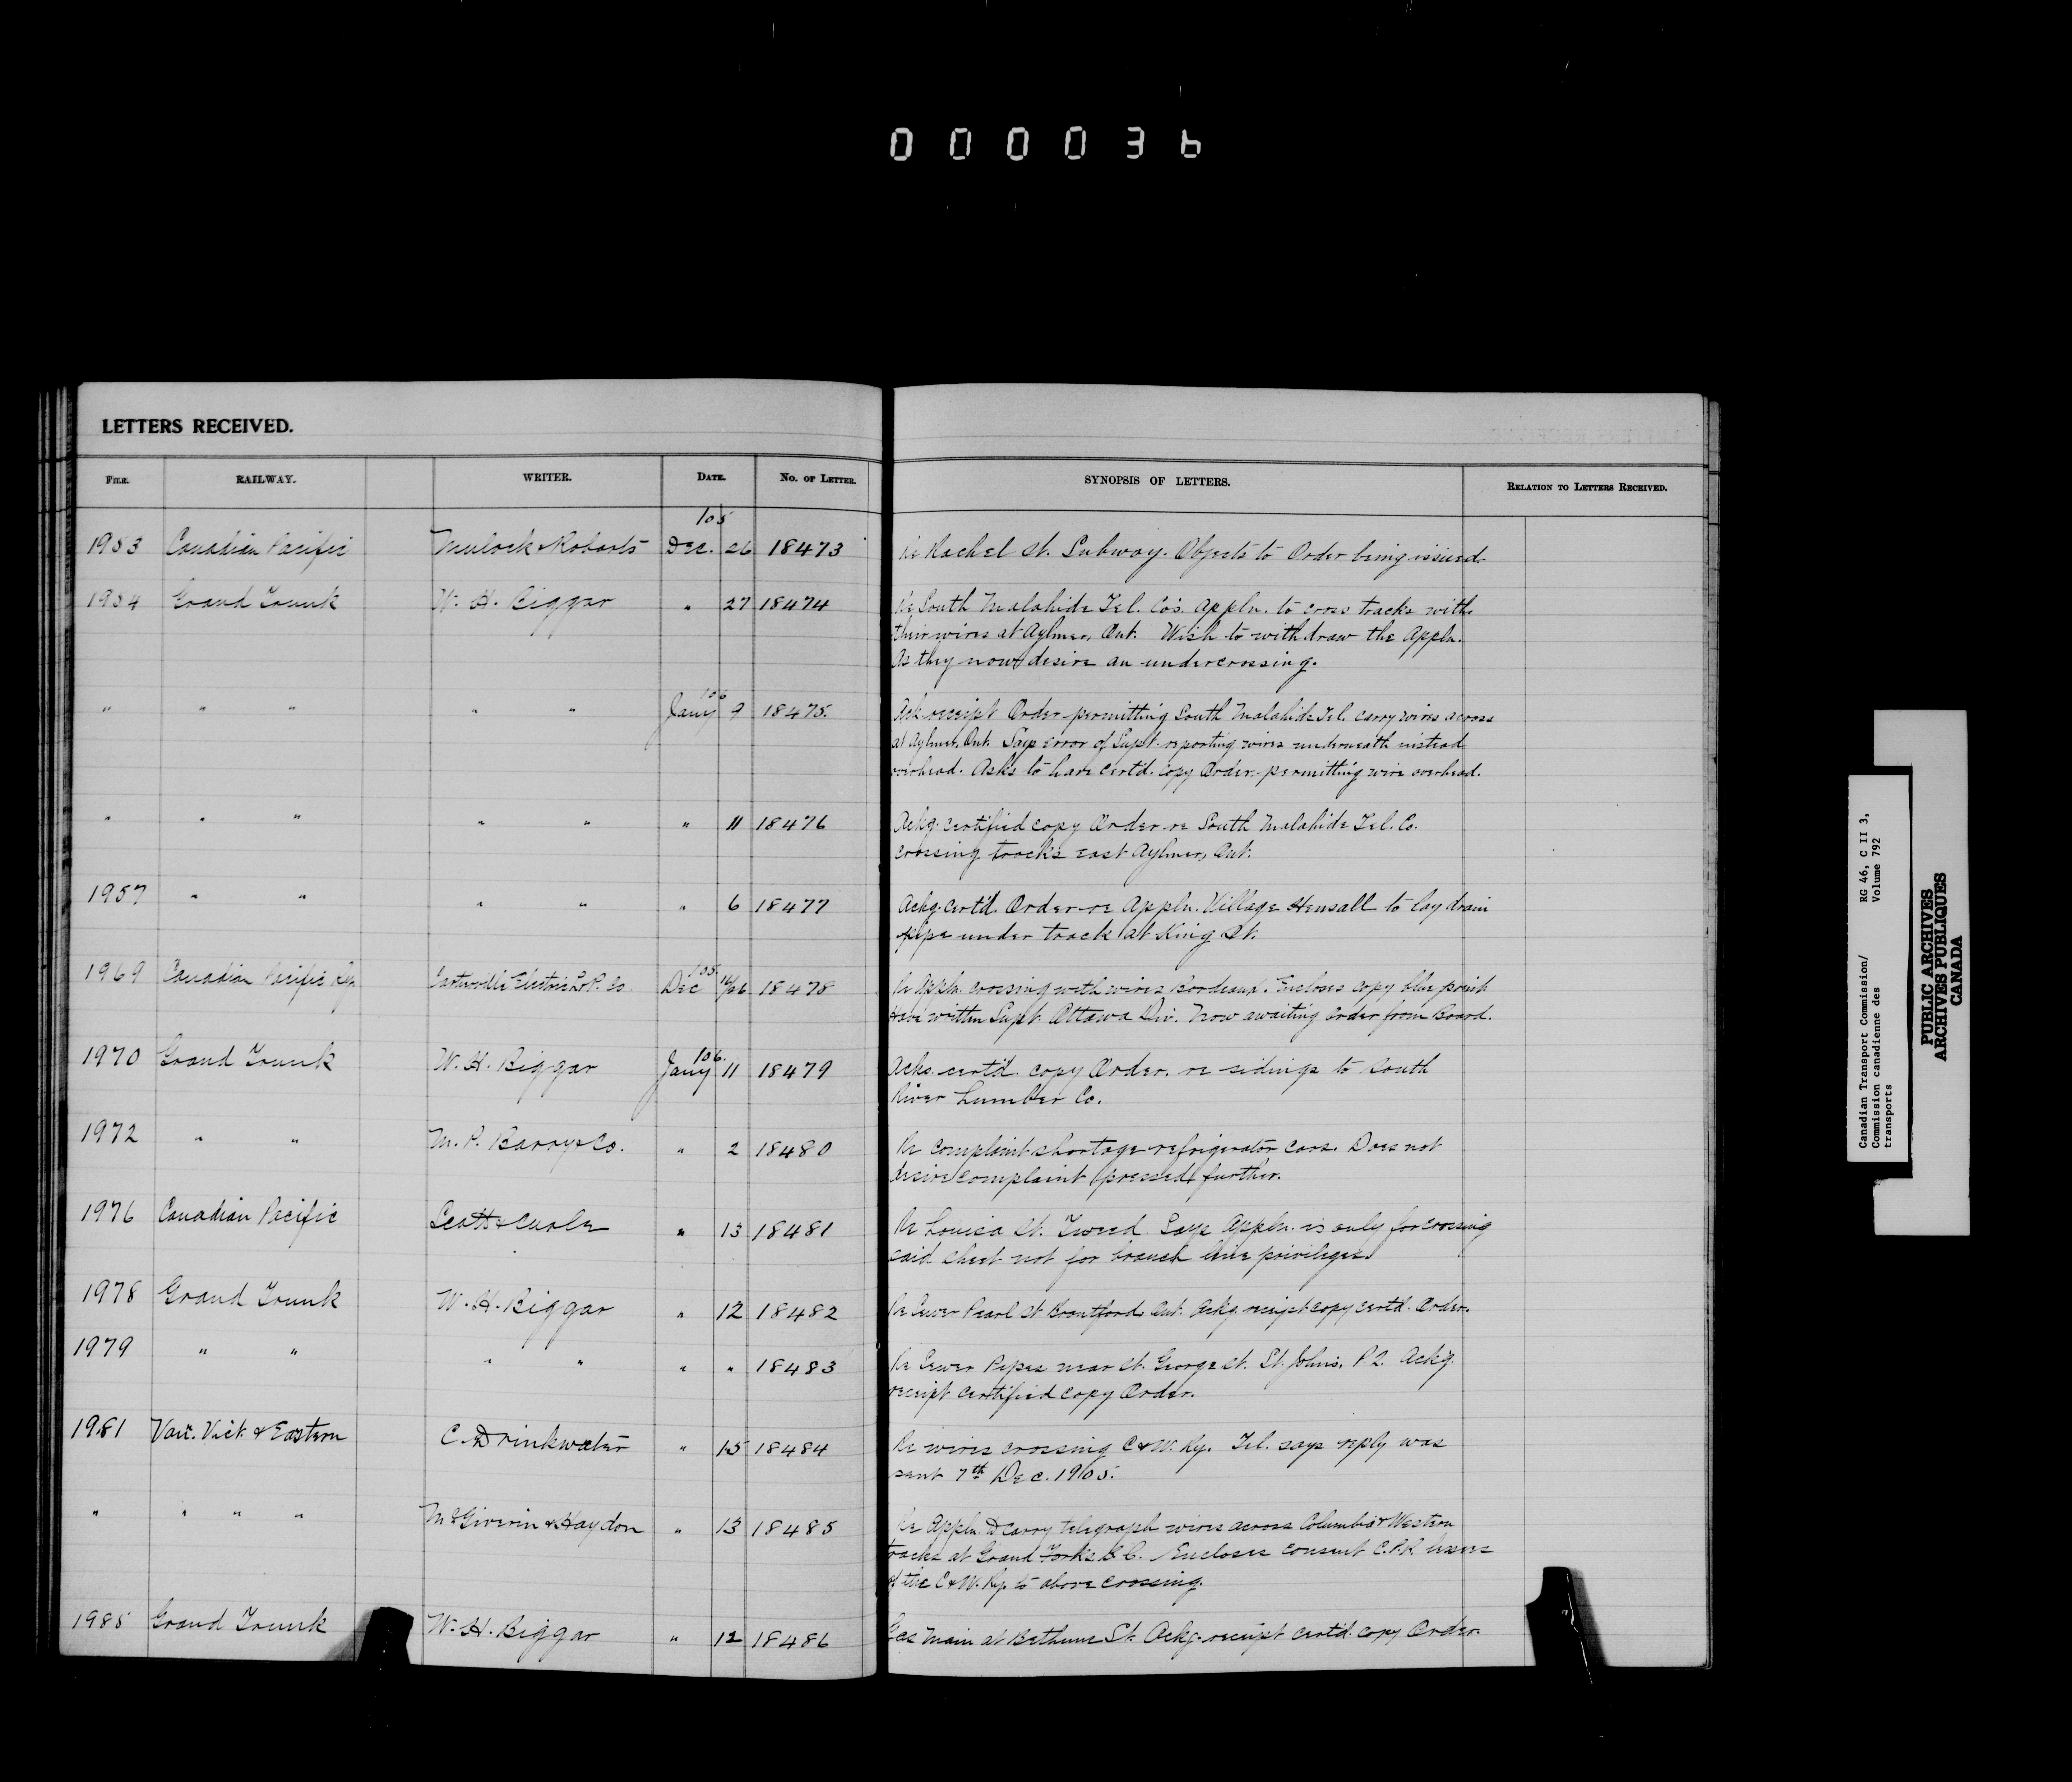 0 0 0 0 3 6
LETTERS RECEIVED.
FILE. RAILWAY. WRITER. DATE. No. of Letter. SYNOPSIS OF LETTERS. Relation to Letters Received.
'05
1953 Canadian Pacific Mulock & Roberts Dec. 26 18473 Re Rachel St. Subway. Objects to Order being issued.
1954 Grand Trunk W. H. Biggar " 27 18474 Re South Malahide Tel. Co's. Appln. to cross tracks with
their wires at Aylmer, Ont. Wish to withdraw the Appln.
As they now desire an undercrossing.
'06
" " " " " Jany 9 18475. Ack receipt Order permitting South Malahide Tel. carry wires across
at Aylmer, Ont. Says error of Supt. reporting wires underneath instead
overhead. Asks to have certd. copy Order permitting wire overhead.
" " " " " " 11 18476 Ackg. certified copy Order re South Malahide Tel. Co.
crossing tracks east Aylmer, Ont.
1957 " " " " " 6 18477 Ackg. certd. Order re Appln. Village Hensall to lay drain
pipe under track at King St.
'05.
1969 Canadian Pacific Ry. Electric L. P. Co. Dec 18478 Re Appln. crossing with wires Bordeaux. Encloses copy blue print
Have written Supt. Ottawa Div. Now awaiting order from Board.
'06.
1970 Grand Trunk W. H. Biggar Jany 11 18479 Acks. certd. copy Order. re sidings to South
River Lumber Co.
1972 " " M. P. Barry & Co. " 2 18480 Re complaint shortage refrigerator cars. Does not
desire complaint pressed further.
1976 Canadian Pacific Scott & Curle " 13 18481 Re Louisa St. Tweed. Says Appln. is only for crossing
said street not for branch line privileges.
1978 Grand Trunk W. H. Biggar " 12 18482 Re Sewer Pearl St Brantford, Ont. Ackg. receipt copy certd. Order.
1979 " " " " " " 18483 Re Sewer Pipes near St. George St. St. Johns, P.Q. Ackg.
receipt certified copy Order.
1981 Vanc. Vict. & Eastern C. Drinkwater " 15 18484 Re wires crossing C & W. Ry. Tel. says reply was
sent 7th Dec. 1905.
" " " " McGiverin & Haydon " 13 18485 Re Appln. to carry telegraph wires across Columbia & Western
tracks at Grand Forks B.C. Encloses consent C.P.R. lessees
of the C & W. Ry. to above crossing.
1985 Grand Trunk W. H. Biggar " 12 18486 Gas Main at Bethune St. Ackg. receipt certd. copy Order.
Canadian Transport Commission/ RG 46, C II 3,
Commission canadienne des Volume 792
transports
PUBLIC ARCHIVES
ARCHIVES PUBLIQUES
CANADA